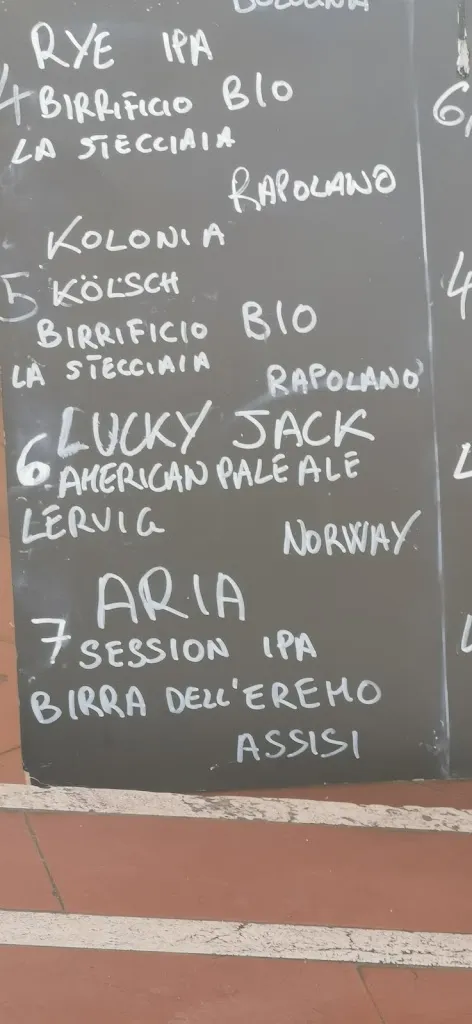 BOLOGNA
RYE IPA
4 BIRRIFICIO BIO
LA STECCIAIA
RAPOLANO
KOLONIA
5 KÖLSCH
BIRRIFICIO BIO
LA STECCIAIA
RAPOLANO
6 LUCKY JACK
AMERICAN PALE ALE
LERVIG
NORWAY
ARIA
7 SESSION IPA
BIRRA DELL'EREMO
ASSISI
6,
4